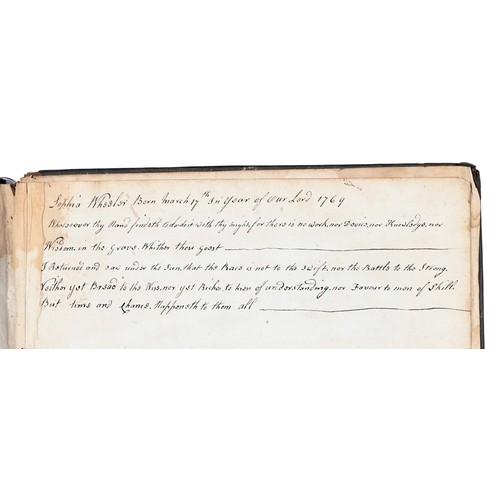 Sophia Wheeler Born March 17th In Year of Our Lord 1769
Whatsoever thy Hand findeth to do do it with thy might, for there is no work, nor Device, nor Knowledge, nor
Wisdom, in the Grave. Whither thou Goest
I Returned and saw under the Sun, that the Race is not to the Swift, nor the Battle to the Strong.
Neither yet Bread to the Wise, nor yet Riches to men of understanding, nor Favour to men of Skill.
But time and Chance, Happeneth to them all